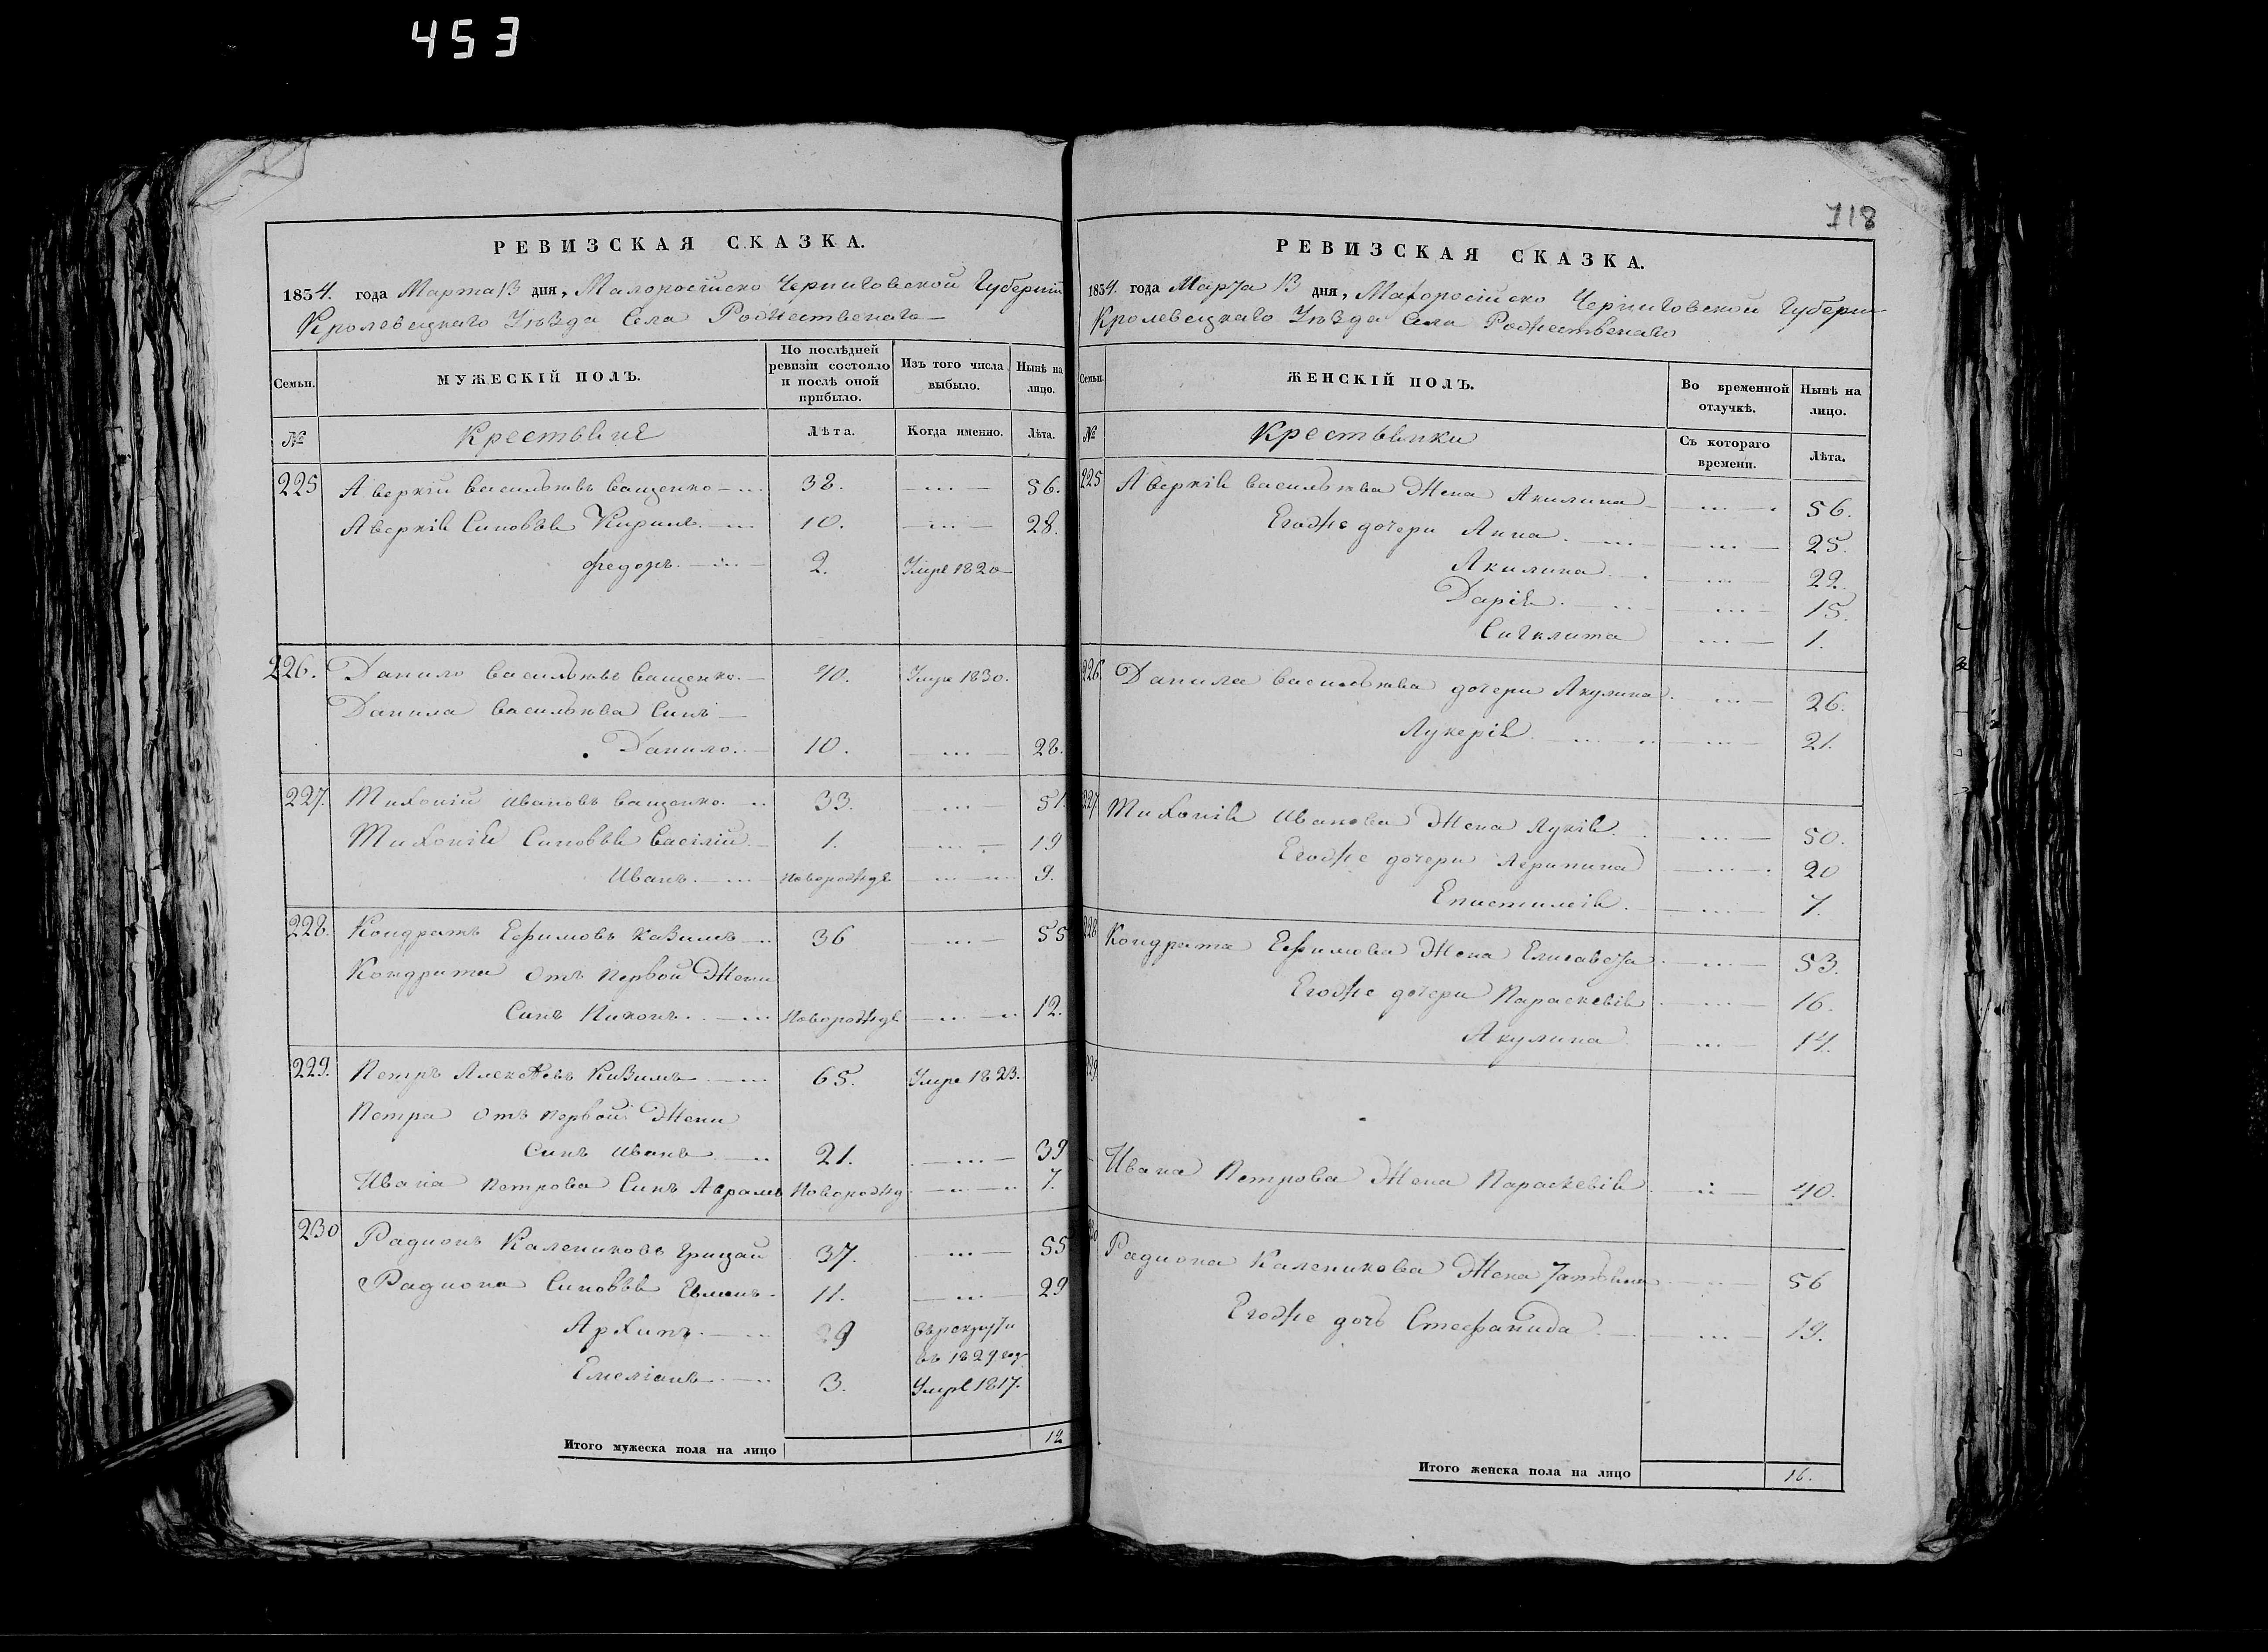 453
718
РЕВИЗСКАЯ СКАЗКА.
1834. года Марта 13 дня, Малоросійско Черниговской Губерніи
Кролевецкаго Уѣзда Села Рождественаго
Семьи. МУЖЕСКІЙ ПОЛЪ. По послѣдней ревизіи состояло и послѣ оной прибыло. Изъ того числа выбыло. Нынѣ на лицо.
№ Крестьяне Лѣта. Когда именно. Лѣта.
225 Аверкій Васильевъ Ващенко 38. 56.
Аверкія Синовья Кирилъ 10. 28.
Федоръ 2. Умре 1820
226. Данило Васильевъ Ващенко 40. Умре 1830.
Данила Васильева Синъ
Данило 10. 28.
227. Тихоній Ивановъ Ващенко 33. 51.
Тихонія Синовья Васілій 1. 19
Иванъ Новорожде 9.
228. Кондратъ Ефимовъ 36 55
Кондрата Отъ первой Жени
Синъ Никонъ Новорожде 12.
229. Петръ Алексѣевъ 65. Умре 1823.
Петра Отъ первой Жени
Синъ Иванъ 21. 39
Ивана Петрова Синъ Аврамъ Новорожд 7.
230 Радионъ Калениковъ Грицай 37. 55
Радиона Синовья 11. 29
Архипъ 9 Въ рекруты
въ 1829 год
Емеліанъ 3. Умре 1817.
Итого мужеска пола на лицо 12
РЕВИЗСКАЯ СКАЗКА.
1834. года Марта 13 дня, Малоросійско Черниговской Губерни
Кролевецкаго Уѣзда Села Рождественаго
Семьи. ЖЕНСКІЙ ПОЛЪ. Во временной отлучкѣ. Нынѣ на лицо.
№ Крестьянки Съ котораго времени. Лѣта.
225 Аверкія Васильева Жена Акилина 56.
Егожъ дочери Анна 25.
Акилина 22.
Дарія 15.
Сигклита 1.
226. Данила Васильева дочери Акулина 26.
Лукерія 21.
227. Тихонія Иванова Жена Лукія 50.
Егоже дочери Агрипина 20
Епистимія 7.
228 Кондрата Ефимова Жена Елисавета 53.
Егоже дочери Параскевія 16.
Акулина 14.
229
Ивана Петрова Жена Параскевія 40.
230 Радиона Каленикова Жена Татьяна 56
Егоже дочь Стефанида 19.
Итого женска пола на лицо 16.